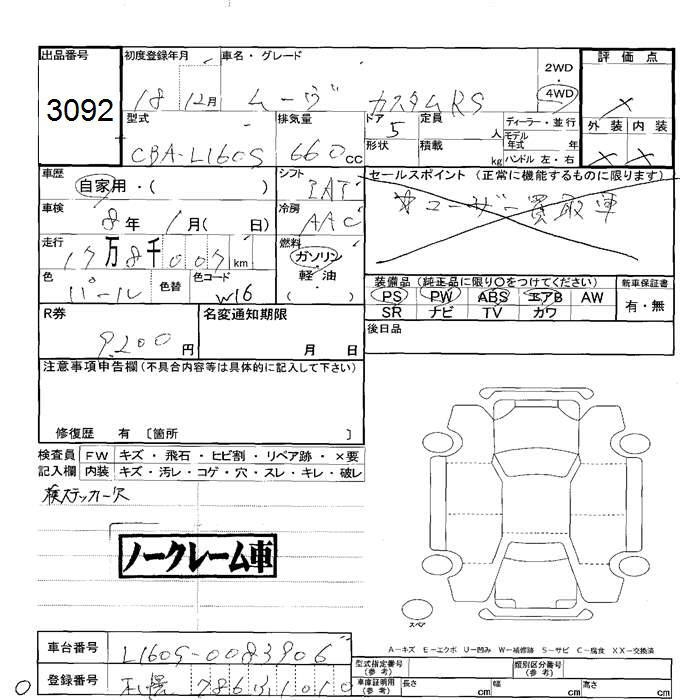 出品番号
3092
初度登録年月
18 12月
車名・グレード
ムーヴ カスタムRS
2WD
・
4WD
評価点
×
外装 内装
× ×
型式
CBA-L160S
排気量
660cc
ドア
5
定員
人
形状
積載
kg
ディーラー・並行
モデル年式 年
ハンドル 左・右
車歴
自家用・( )
シフト
IAT
セールスポイント (正常に機能するものに限ります)
ユーザー買取車
車検
8年 1月( 日)
冷房
AAC
走行
17万8千007km
燃料
ガソリン・軽油
( )
色
パール
色替
色コード
W16
装備品 (純正品に限り○をつけてください)
PS PW ABS エアB AW
SR ナビ TV カワ
新車保証書
有・無
R券
9,200円
名変通知期限
月 日
後日品
注意事項申告欄(不具合内容等は具体的に記入して下さい)
修復歴 有 〔箇所 〕
検査員記入欄
FW キズ・飛石・ヒビ割・リペア跡・×要
内装 キズ・汚レ・コゲ・穴・スレ・キレ・破レ
検ステッカー欠
ノークレーム車
スペア
A−キズ E−エクボ U−凹み W−補修跡 S−サビ C−腐食 XX−交換済
車台番号
L160S-0083906
型式指定番号
(参考)
類別区分番号
(参考)
登録番号
札幌
車庫証明用
(参考)
長さ cm
幅 cm
高さ cm